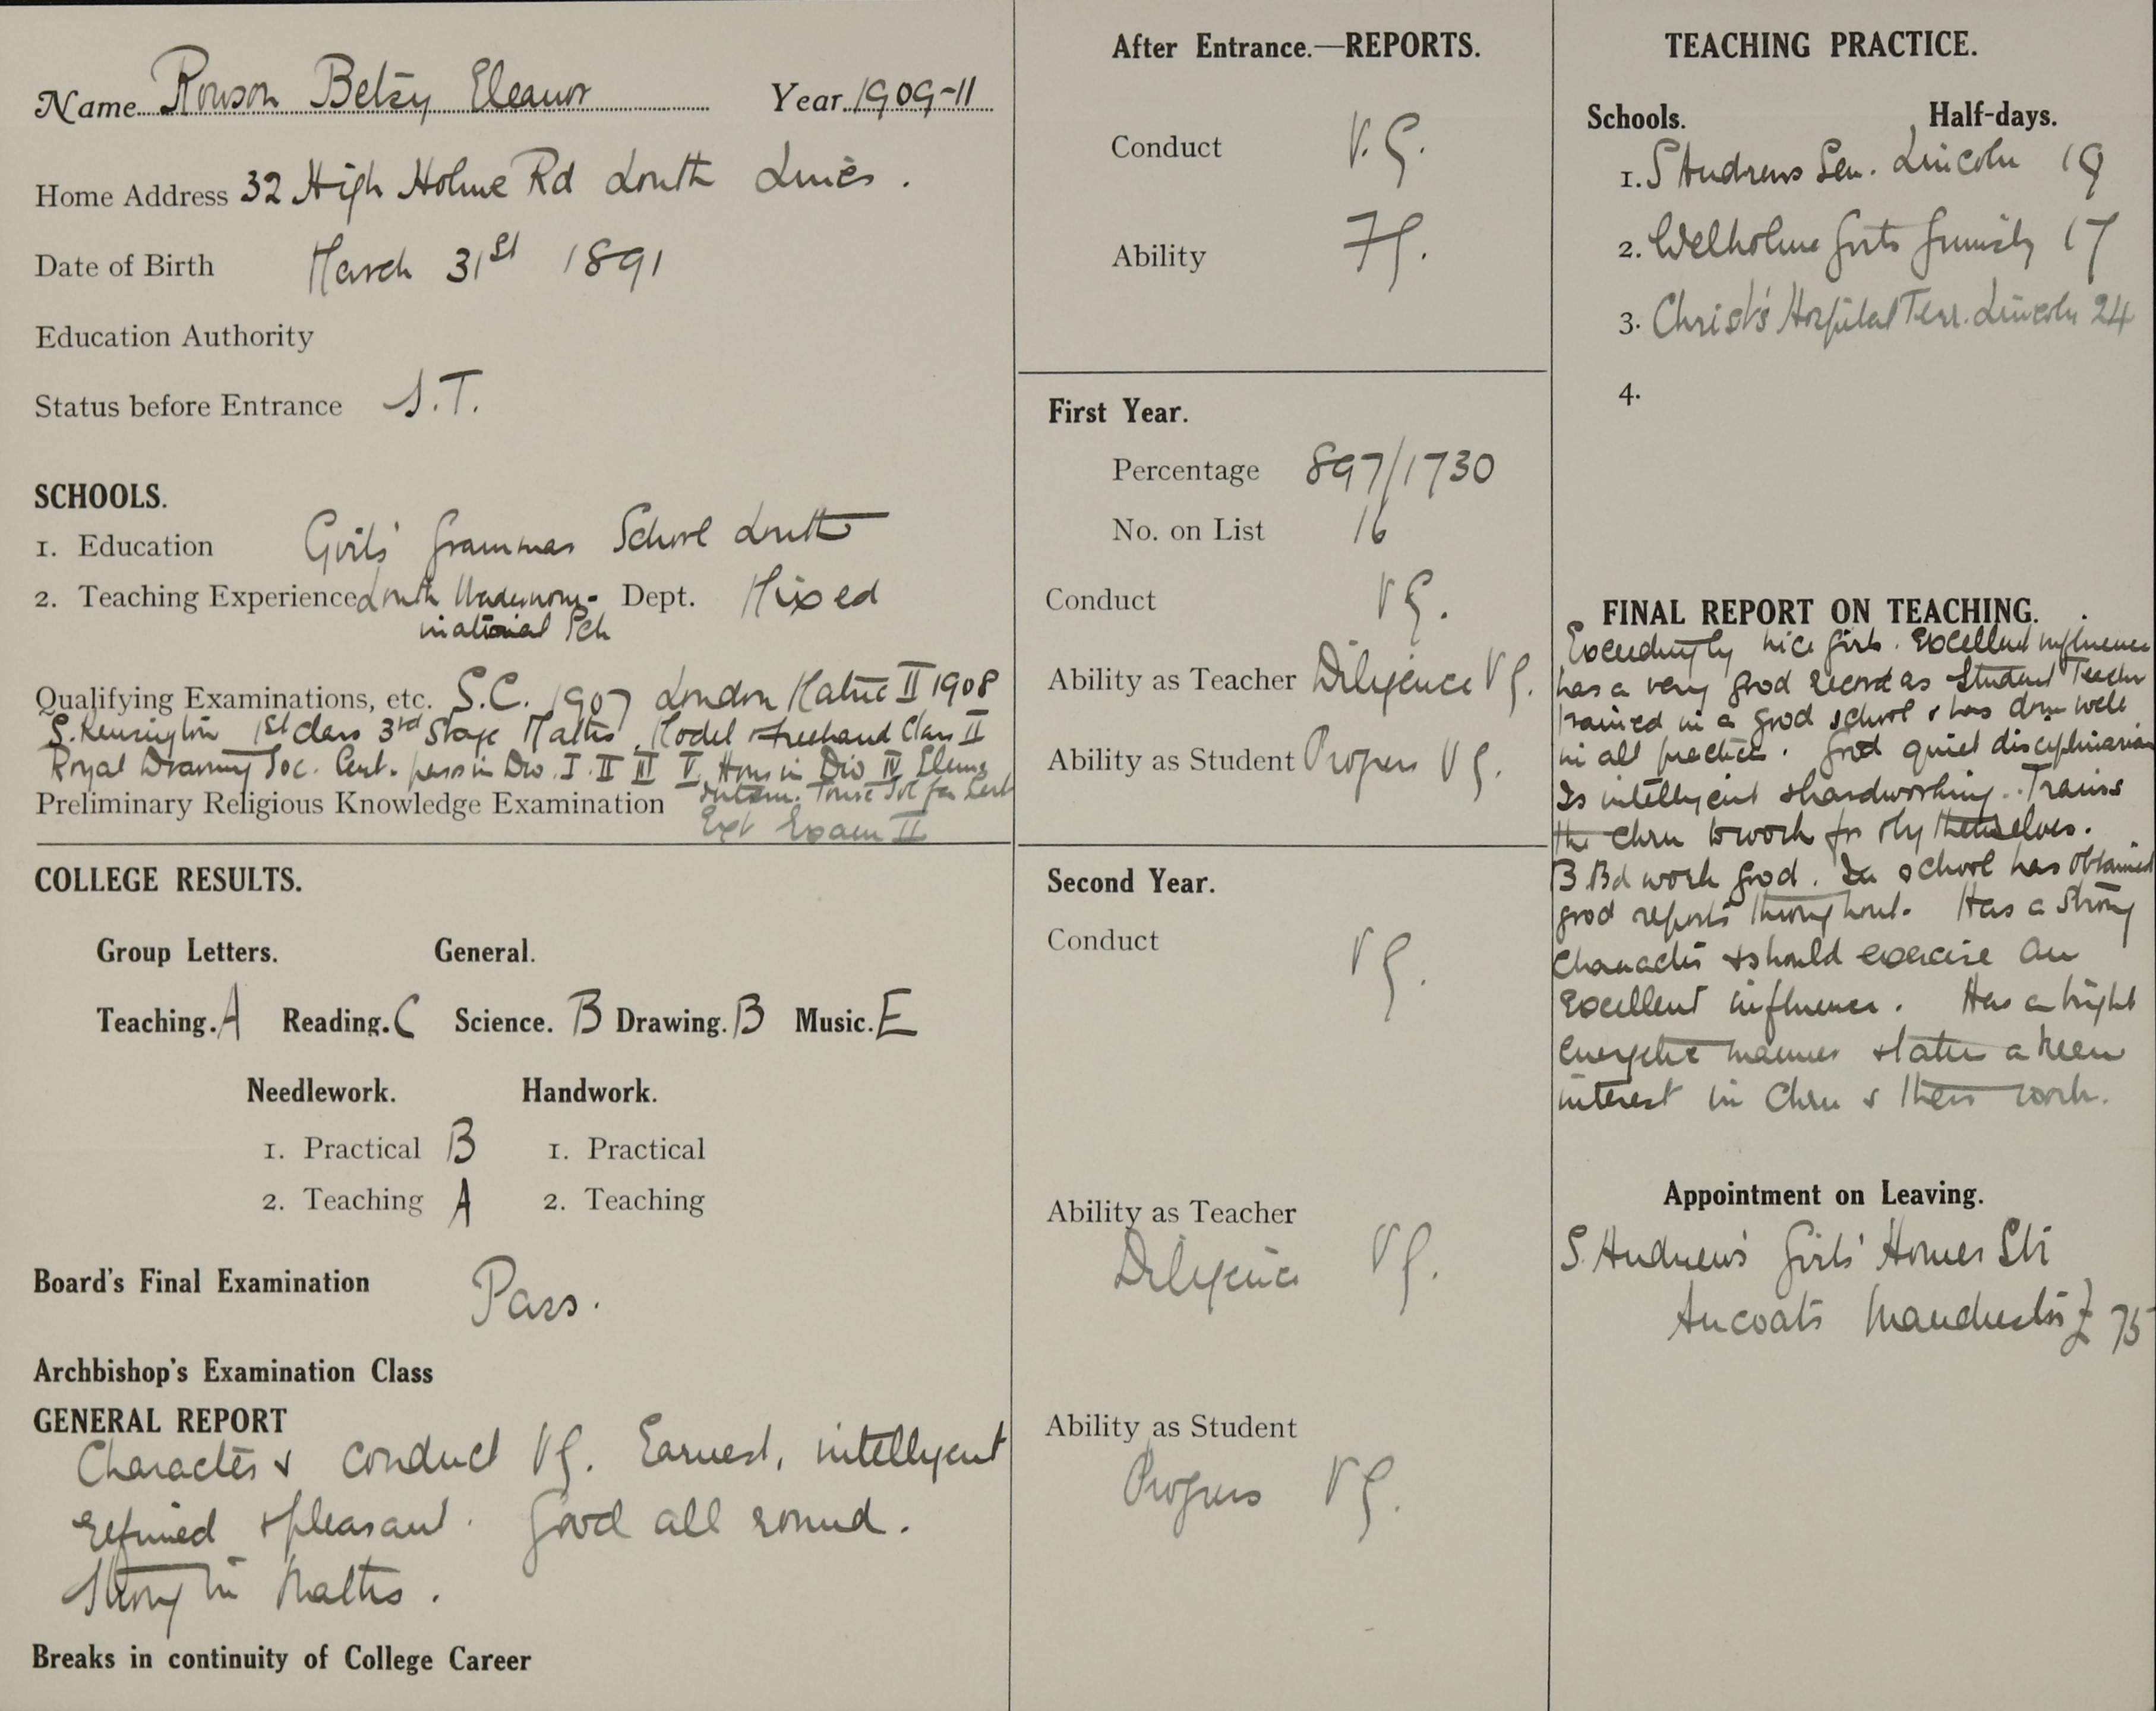 Name Rowson Betsy Eleanor Year 1909-11
Home Address 32 High Holme Rd Louth Lincs.
Date of Birth March 31st 1891
Education Authority
Status before Entrance S.T.
SCHOOLS.
1. Education Girls' Grammar School Louth
2. Teaching Experience Louth Undenom- Dept. Mixed
inational Sch
Qualifying Examinations, etc. S.C. 1907 London Matric II 1908
S. Kensington 1st Class 3rd Stage Maths, Model Freehand Class II
Royal Drawing Soc. Cert. pass in Div. I II III V. Hons in Div IV
Preliminary Religious Knowledge Examination
Exam II
COLLEGE RESULTS.
Group Letters. General.
Teaching. A Reading. C Science. B Drawing. B Music. E
Needlework. Handwork.
1. Practical B 1. Practical
2. Teaching A 2. Teaching
Board's Final Examination Pass.
Archbishop's Examination Class
GENERAL REPORT
Character & conduct VG. Earnest, intelligent
refined & pleasant. Good all round.
Strong in Maths.
Breaks in continuity of College Career
After Entrance.—REPORTS.
Conduct V.G.
Ability FG.
First Year.
Percentage 897/1730
No. on List 16
Conduct VG.
Ability as Teacher Diligence VG.
Ability as Student Progress VG.
Second Year.
Conduct VG.
Ability as Teacher
Diligence VG.
Ability as Student
Progress VG.
TEACHING PRACTICE.
Schools. Half-days.
1. S Andrews Sen. Lincoln 19
2. Welholme Girls Grimsby 17
3. Christ's Hospital Terr. Lincoln 24
4.
FINAL REPORT ON TEACHING.
Exceedingly nice girl. Excellent influence
has a very good record as Student Teacher
trained in a good school & has done well
in all practice. Good quiet disciplinarian
Is intelligent & hardworking. Trains
the Chrn to work for themselves.
B Bd work good. In school has obtained
good reports throughout. Has a strong
character & should exercise an
excellent influence. Has a bright
energetic manner & takes a keen
interest in Chrn & their work.
Appointment on Leaving.
S. Andrew's Girls' Homer Str
Ancoats Manchester £75